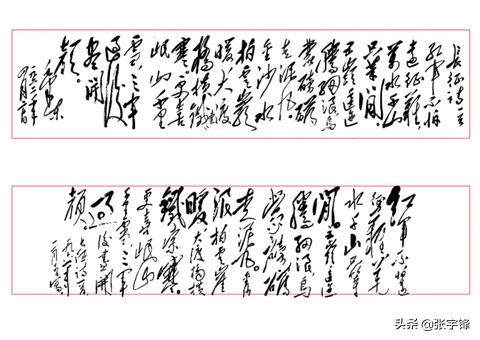 长征诗一首
红军不怕
远征难
万水千山
只等闲
五岭逶迤
腾细浪乌
蒙磅礴
走泥丸
金沙水
拍云崖
暖大渡
桥横铁索
寒更喜
岷山千里
雪三军
过后
尽开
颜
毛泽东
红军不怕远
征难万
水千山只等
闲五岭逶迤
腾细浪乌
蒙磅礴
走泥丸金沙
水拍云崖
暖大渡桥横
铁索寒
更喜岷山
千里雪三军
过后尽开
颜
头条 @张宇锋